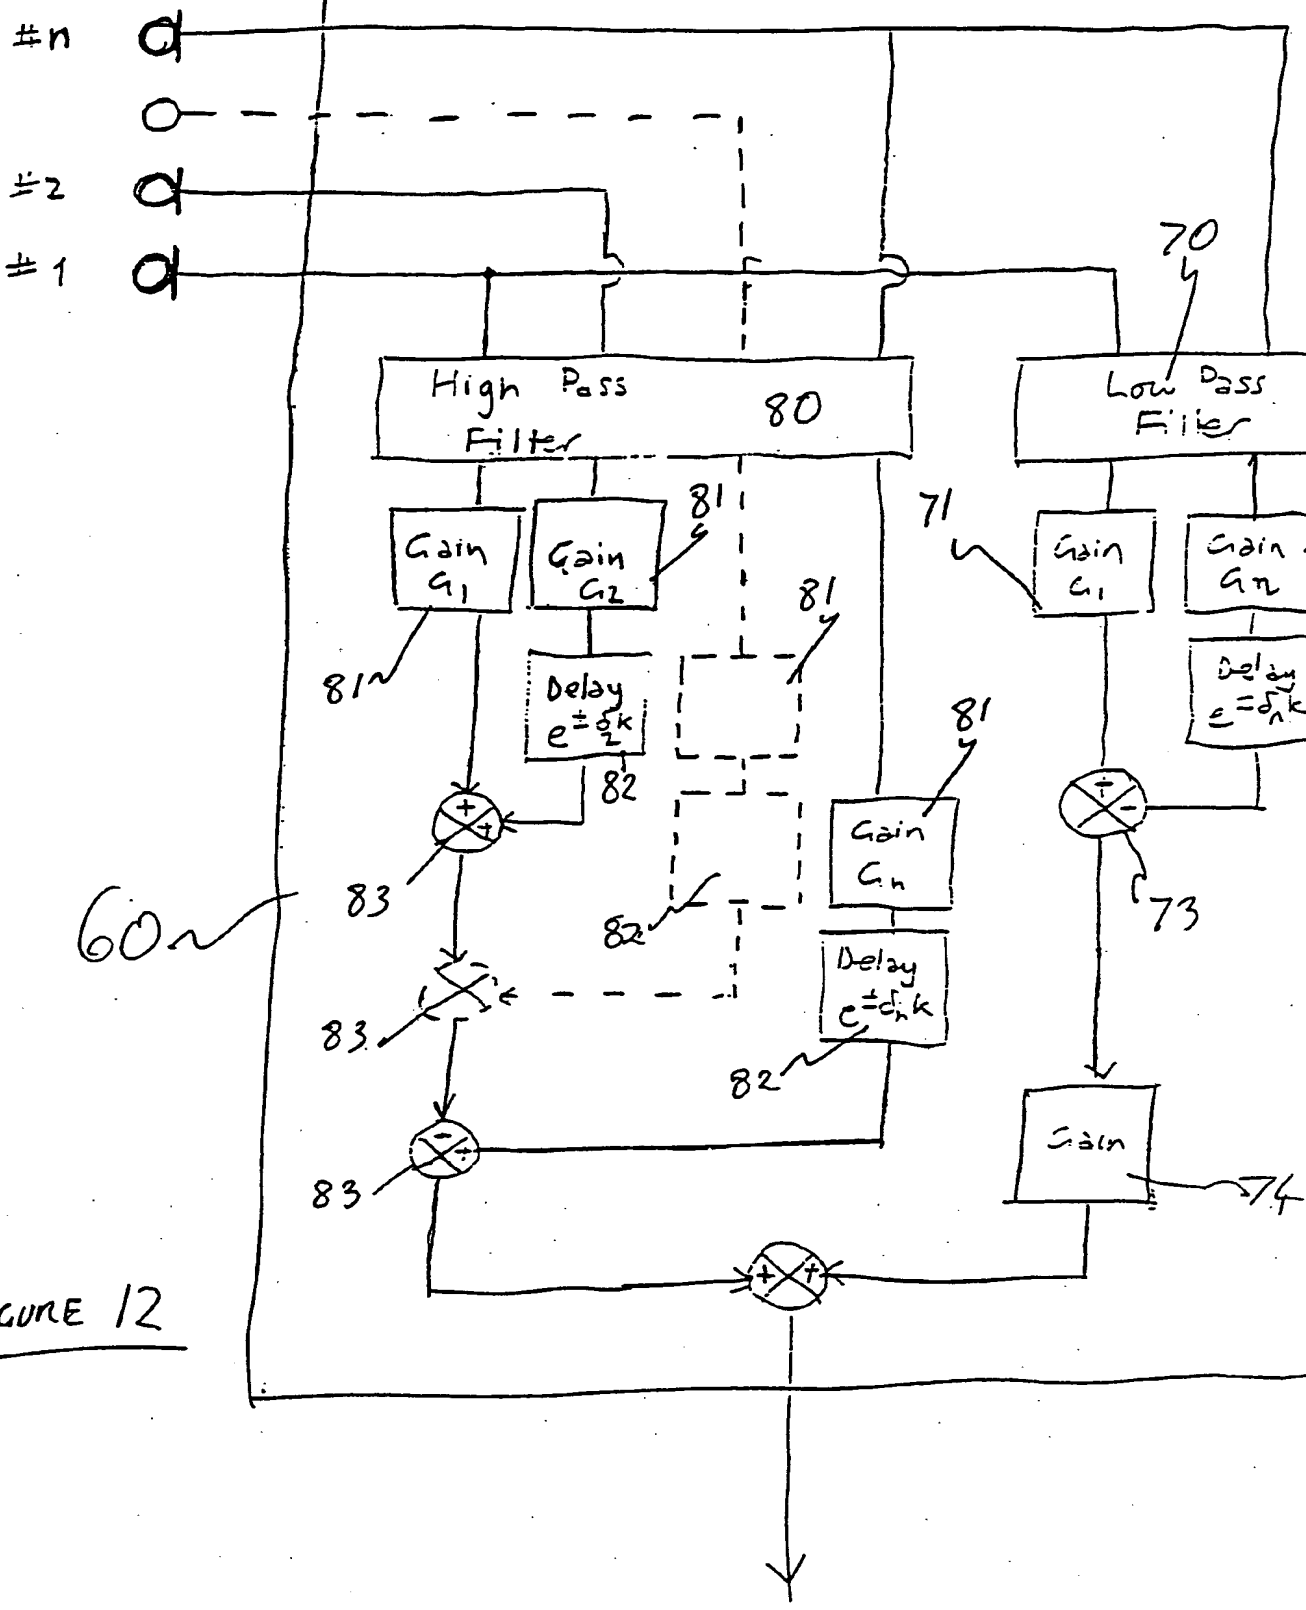 #n
#2
#1
70
High Pass
Filter
80
Low Pass
Filter
81
71
Gain
G1
Gain
G2
Gain
G1
Gain
Gn
81
81
Delay
e±δ2k
82
Delay
e δnk
81
+
+
Gain
Gn
-
83
82
73
60
Delay
e±δnk
83
82
Gain
83
74
+
+
FIGURE 12